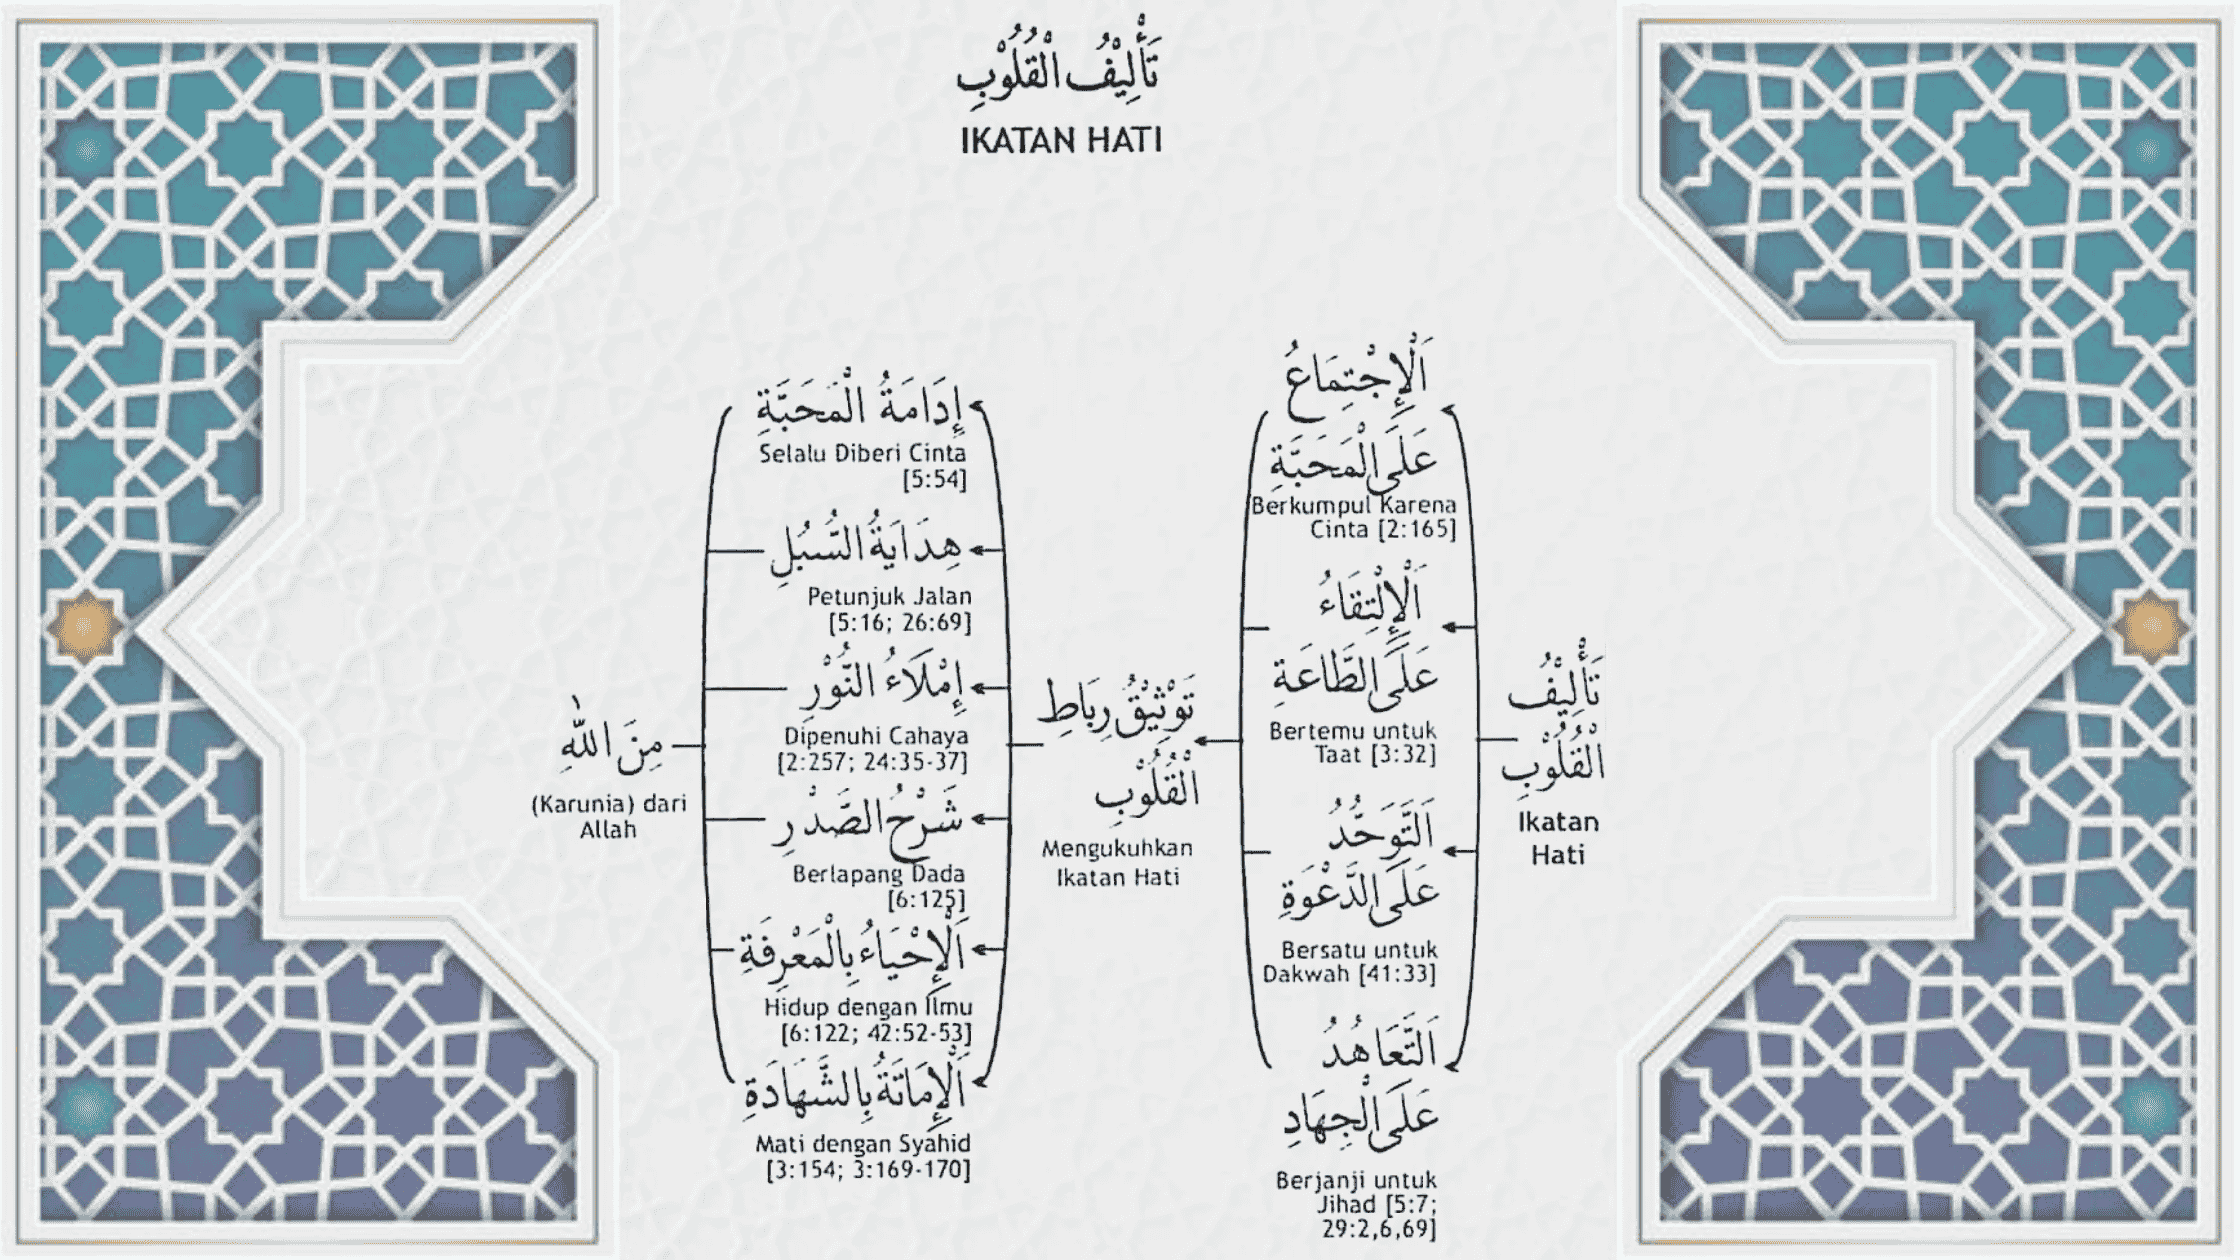 تَأْلِيْفُ الْقُلُوْبِ
IKATAN HATI
تَأْلِيْفُ
الْقُلُوْبِ
Ikatan
Hati
اَلْإِجْتِمَاعُ
عَلَى الْمَحَبَّةِ
Berkumpul Karena
Cinta [2:165]
اَلْإِلْتِقَاءُ
عَلَى الطَّاعَةِ
Bertemu untuk
Taat [3:32]
اَلتَّوَحُّدُ
عَلَى الدَّعْوَةِ
Bersatu untuk
Dakwah [41:33]
اَلتَّعَاهُدُ
عَلَى الْجِهَادِ
Berjanji untuk
Jihad [5:7;
29:2,6,69]
تَوْثِيْقُ رِبَاطِ
الْقُلُوْبِ
Mengukuhkan
Ikatan Hati
إِدَامَةُ الْمَحَبَّةِ
Selalu Diberi Cinta
[5:54]
هِدَايَةُ السُّبُلِ
Petunjuk Jalan
[5:16; 26:69]
إِمْلَاءُ النُّوْرِ
Dipenuhi Cahaya
[2:257; 24:35-37]
شَرْحُ الصَّدْرِ
Berlapang Dada
[6:125]
اَلْإِحْيَاءُ بِالْمَعْرِفَةِ
Hidup dengan Ilmu
[6:122; 42:52-53]
اَلْإِمَاتَةُ بِالشَّهَادَةِ
Mati dengan Syahid
[3:154; 3:169-170]
مِنَ اللهِ
(Karunia) dari
Allah